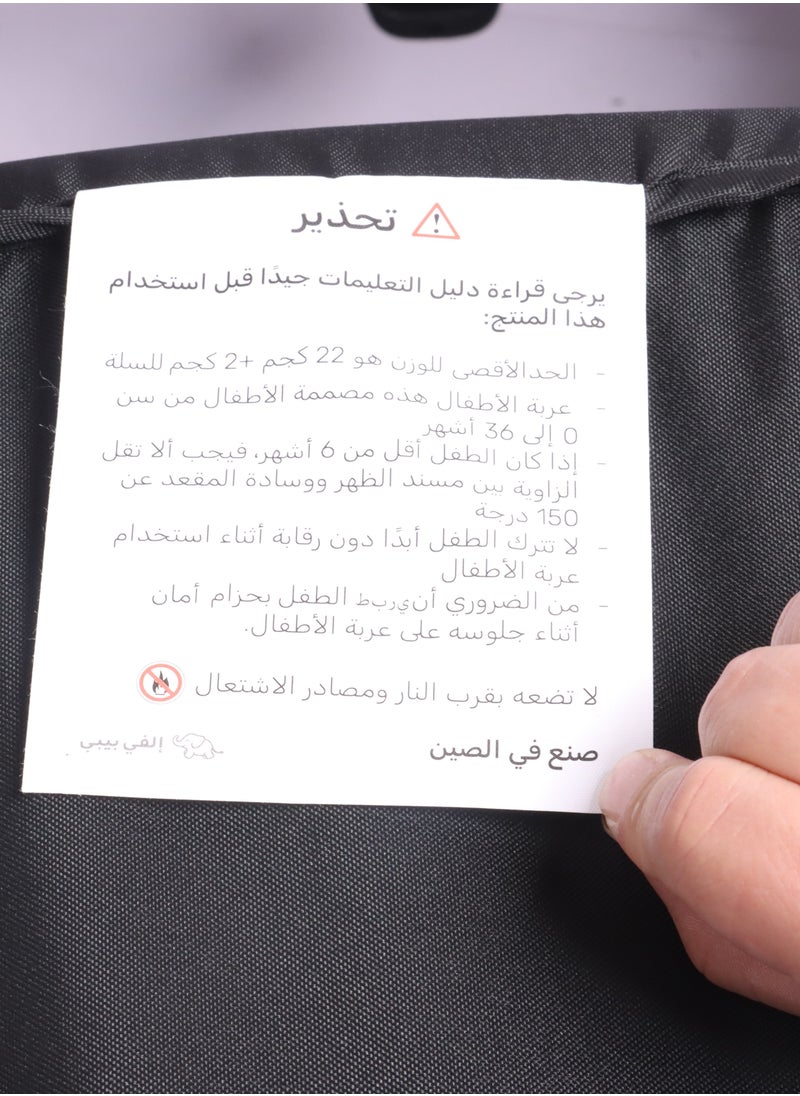 تحذير
يرجى قراءة دليل التعليمات جيدًا قبل استخدام
هذا المنتج:
- الحدالأقصى للوزن هو 22 كجم +2 كجم للسلة
- عربة الأطفال هذه مصممة الأطفال من سن
0 إلى 36 أشهر
- إذا كان الطفل أقل من 6 أشهر، فيجب ألا تقل
الزاوية بين مسند الظهر ووسادة المقعد عن
150 درجة
- لا تترك الطفل أبدًا دون رقابة أثناء استخدام
عربة الأطفال
- من الضروري أن يربط الطفل بحزام أمان
أثناء جلوسه على عربة الأطفال.
لا تضعه بقرب النار ومصادر الاشتعال
صنع في الصين
إلفي بيبي